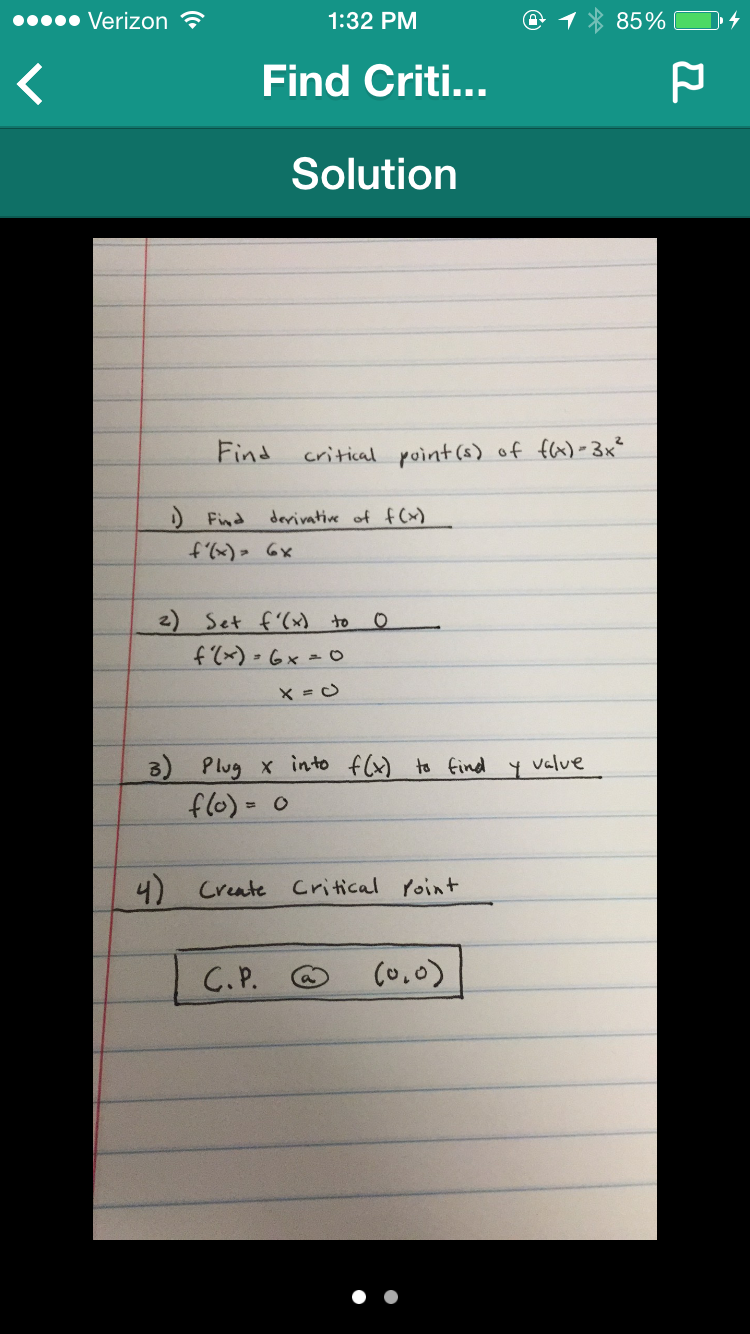 Verizon 1:32 PM 85%
Find Criti...
Solution
Find critical point(s) of f(x)=3x²
1) Find derivative of f(x)
f'(x)= 6x
2) Set f'(x) to 0
f'(x)=6x=0
x=0
3) Plug x into f(x) to find y value
f(0)= 0
4) Create Critical Point
C.P. @ (0,0)